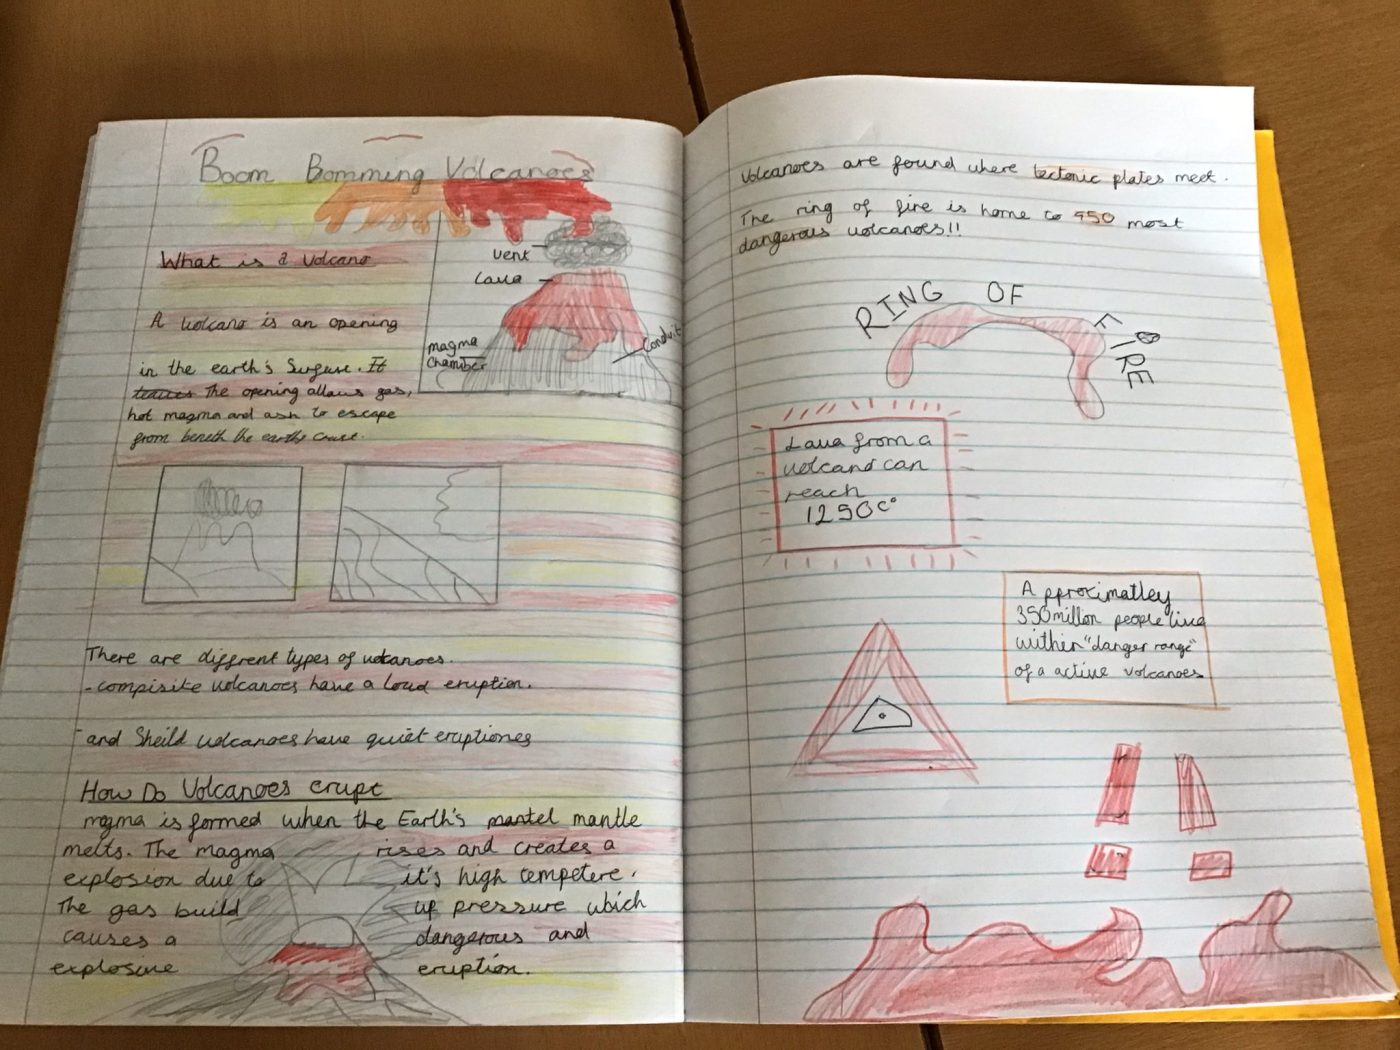 Boom Bomming Volcanoes
What is a Volcano
vent
Lava
magma
chamber
Conduit
A volcano is an opening
in the earth's Surfuse. It
The opening allows gas,
hot magma and ash to escape
from beneth the earths crust.
There are diffrent types of volcanoes.
- compisite volcanoes have a loud eruption.
- and Sheild volcanoes have quiet eruptiones
How Do Volcanoes erupt
magma is formed when the Earth's mantel mantle
melts. The magma rises and creates a
explosion due to it's high tempetere.
The gas build up pressure which
causes a dangerous and
explosive eruption.
Volcanoes are found where tectonic plates meet.
The ring of fire is home to 450 most
dangerous volcanoes!!
RING OF FIRE
Lava from a
volcano can
reach
1250c°
Approximatley
350 million people live
within "danger range"
of a active volcanoes
!!